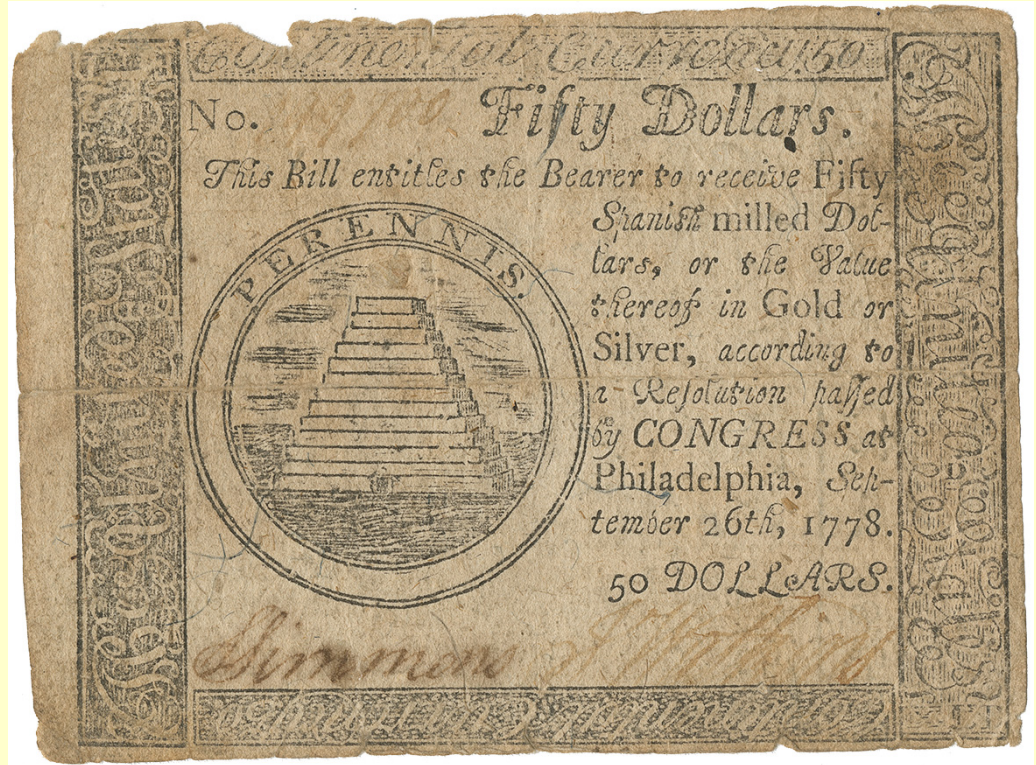 Continental Currency 50
No. Fifty Dollars.
This Bill entitles the Bearer to receive Fifty
Spanish milled Dol-
lars, or the Value
thereof in Gold or
Silver, according to
a Resolution passed
by CONGRESS at
Philadelphia, Sep-
tember 26th, 1778.
50 DOLLARS.
PERENNIS.
Simmons